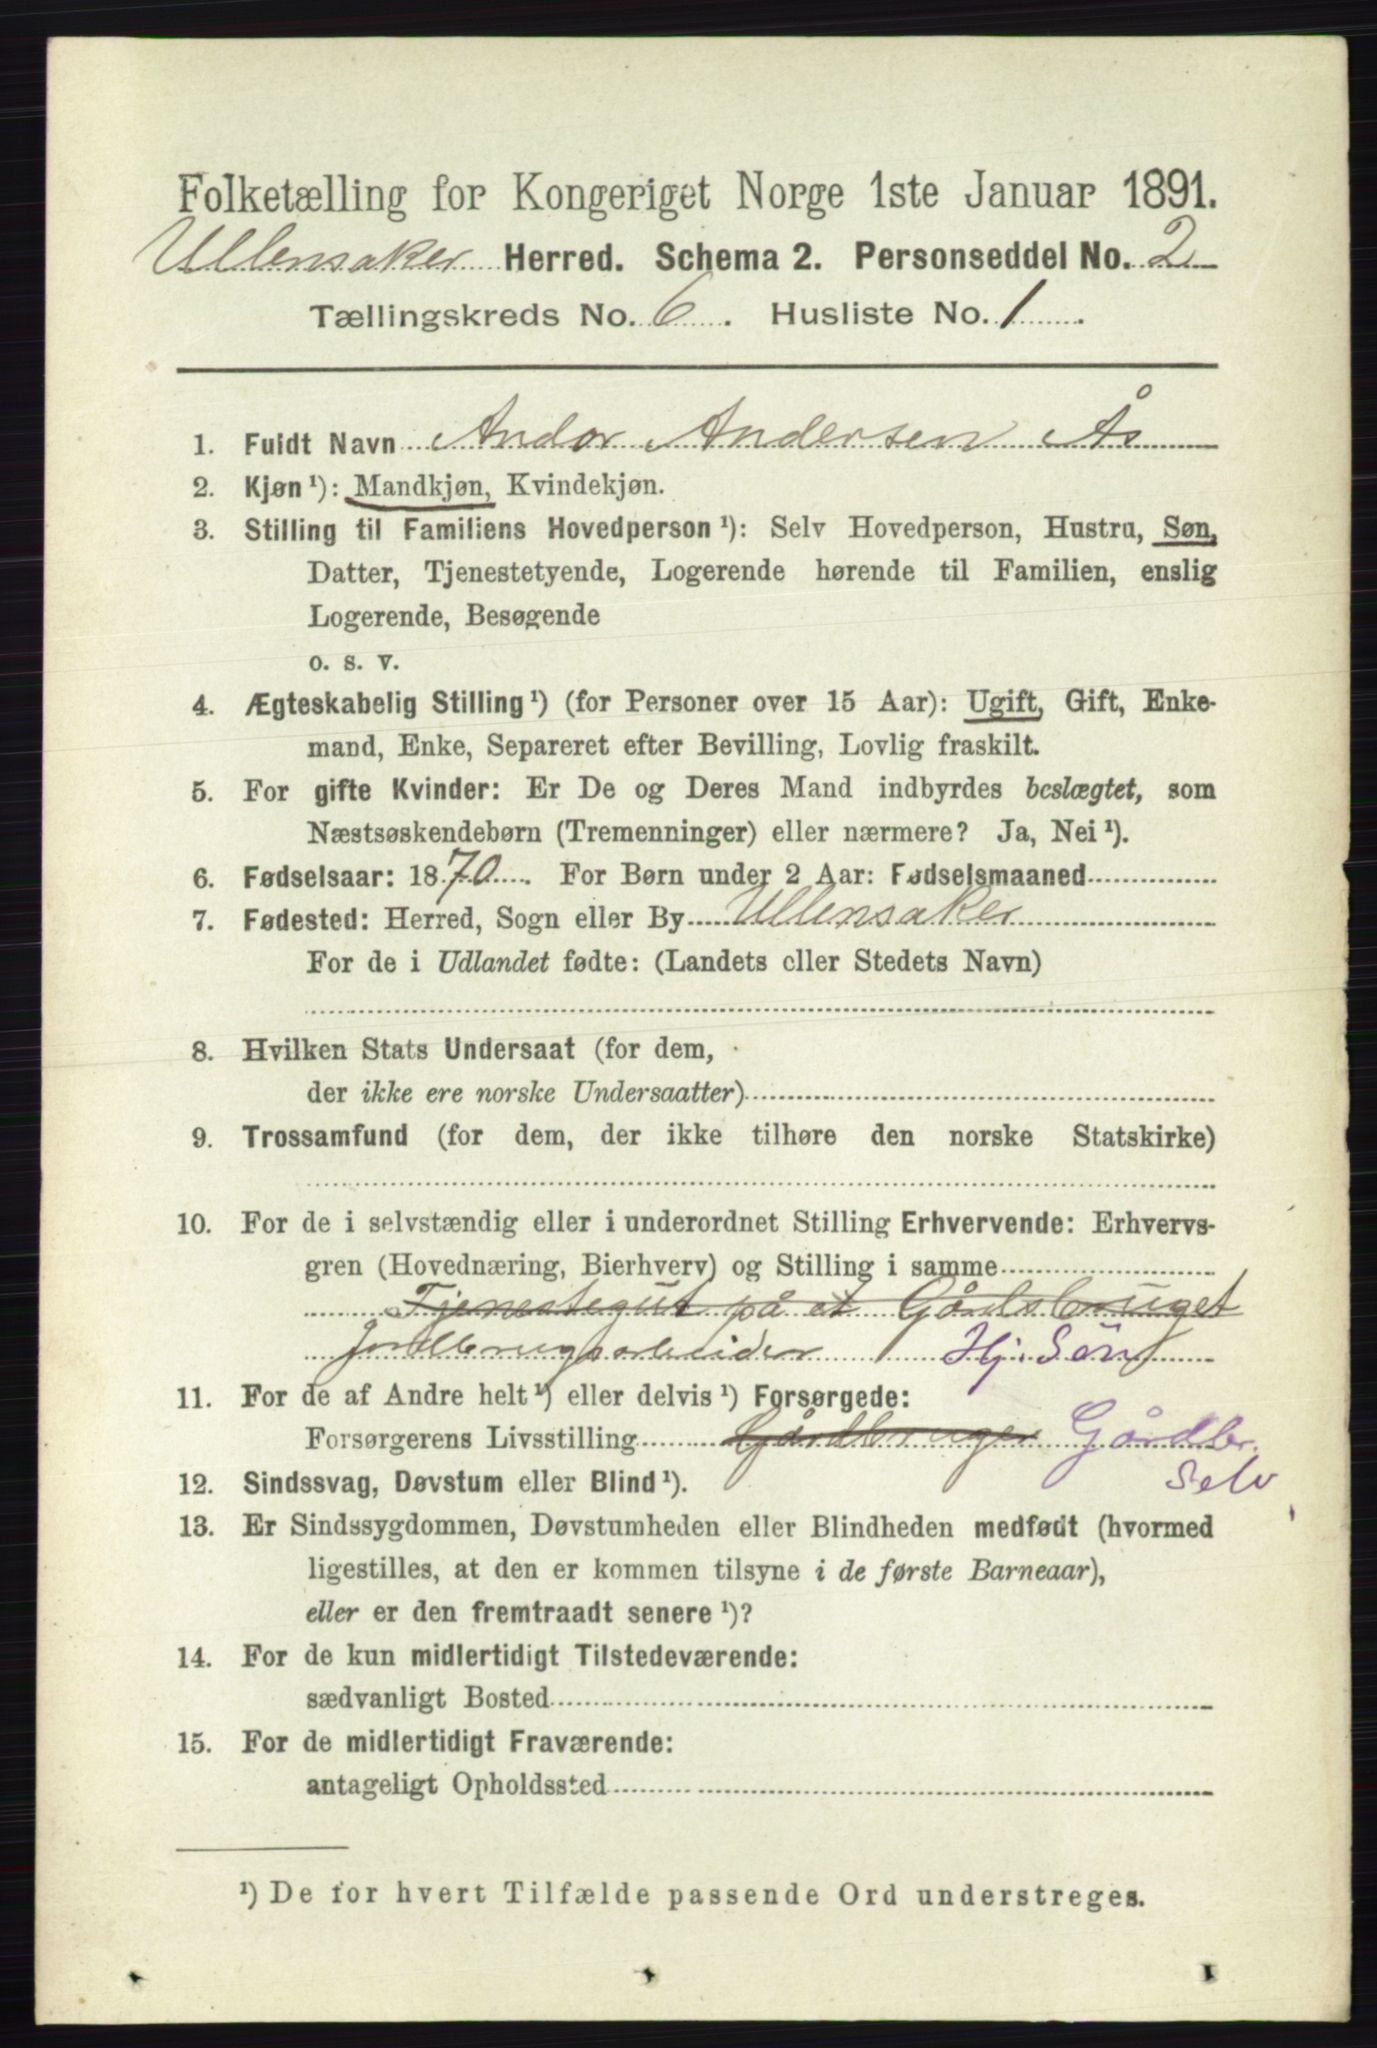 Folketælling for Kongeriget Norge 1ste Januar 1891.
Ullensaker Herred. Schema 2. Personseddel No. 2
Tællingskreds No. 6. Husliste No. 1.
1. Fuldt Navn Andor Andersen Ås
2. Kjøn ¹): Mandkjøn, Kvindekjøn.
3. Stilling til Familiens Hovedperson ¹): Selv Hovedperson, Hustru, Søn,
Datter, Tjenestetyende, Logerende hørende til Familien, enslig
Logerende, Besøgende
o. s. v.
4. Ægteskabelig Stilling ¹) (for Personer over 15 Aar): Ugift, Gift, Enke-
mand, Enke, Separeret efter Bevilling, Lovlig fraskilt.
5. For gifte Kvinder: Er De og Deres Mand indbyrdes beslægtet, som
Næstsøskendebørn (Tremenninger) eller nærmere? Ja, Nei ¹).
6. Fødselsaar: 1870. For Børn under 2 Aar: Fødselsmaaned
7. Fødested: Herred, Sogn eller By Ullensaker
For de i Udlandet fødte: (Landets eller Stedets Navn)
8. Hvilken Stats Undersaat (for dem,
der ikke ere norske Undersaatter)
9. Trossamfund (for dem, der ikke tilhøre den norske Statskirke)
10. For de i selvstændig eller i underordnet Stilling Erhvervende: Erhvervs-
gren (Hovednæring, Bierhverv) og Stilling i samme
Tjenestegut på et Gårdsbruget
Jordbrugsarbeider Hj. Søn
11. For de af Andre helt ¹) eller delvis ¹) Forsørgede:
Forsørgerens Livsstilling Gårdbruger Gårdbr.
Selv
12. Sindssvag, Døvstum eller Blind ¹).
13. Er Sindssygdommen, Døvstumheden eller Blindheden medfødt (hvormed
ligestilles, at den er kommen tilsyne i de første Barneaar),
eller er den fremtraadt senere ¹)?
14. For de kun midlertidigt Tilstedeværende:
sædvanligt Bosted
15. For de midlertidigt Fraværende:
antageligt Opholdssted
¹) De for hvert Tilfælde passende Ord understreges.